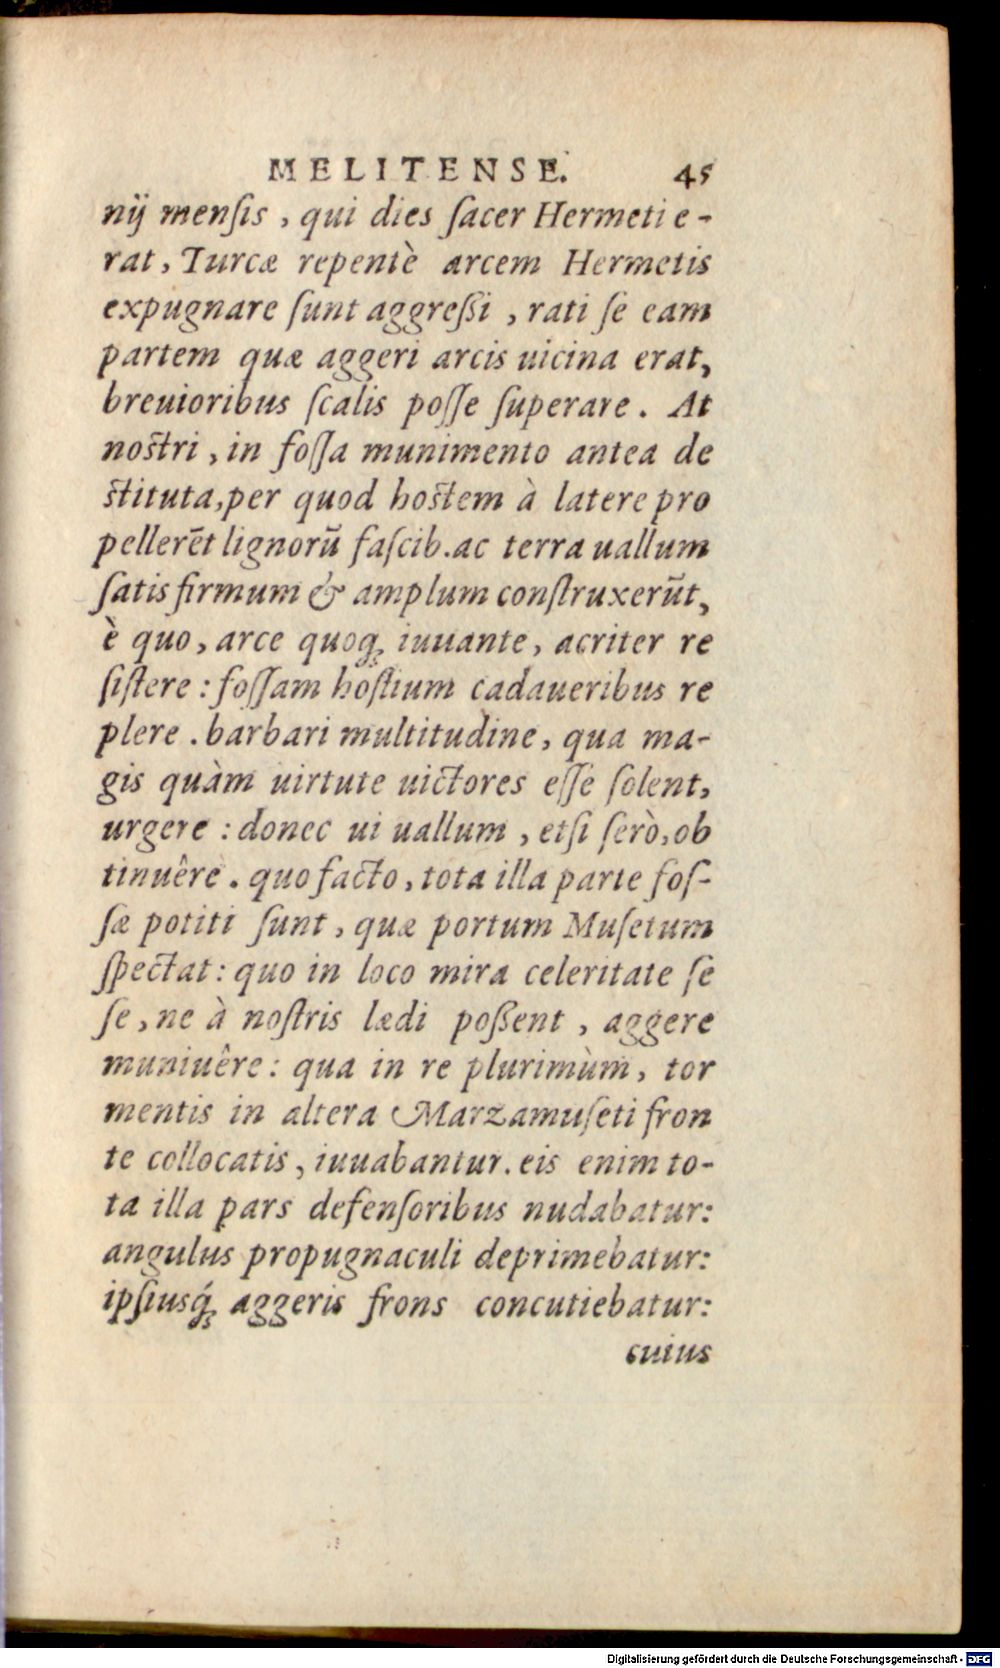 MELITENSE. 45
nij menſis, qui dies ſacer Hermeti e-
rat, Turcæ repentè arcem Hermetis
expugnare ſunt aggreßi, rati ſe eam
partem quæ aggeri arcis uicina erat,
breuioribus ſcalis poſſe ſuperare. At
noſtri, in foſſa munimento antea de
ſtituta, per quod hoſtem à latere pro
pellerēt lignorū faſcib. ac terra uallum
ſatis firmum & amplum conſtruxerūt,
è quo, arce quoq; iuuante, acriter re
ſiſtere: foſſam hoſtium cadaueribus re
plere. barbari multitudine, qua ma-
gis quàm uirtute uictores eſſe ſolent,
urgere: donec ui uallum, etſi ſerò, ob
tinuêre. quo facto, tota illa parte foſ-
ſæ potiti ſunt, quæ portum Muſetum
ſpectat: quo in loco mira celeritate ſe
ſe, ne à noſtris lædi poßent, aggere
muniuêre: qua in re plurimùm, tor
mentis in altera Marzamuſeti fron
te collocatis, iuuabantur. eis enim to-
ta illa pars defenſoribus nudabatur:
angulus propugnaculi deprimebatur:
ipſiusq́; aggeris frons concutiebatur:
cuius
Digitalisierung gefördert durch die Deutsche Forschungsgemeinschaft - DFG